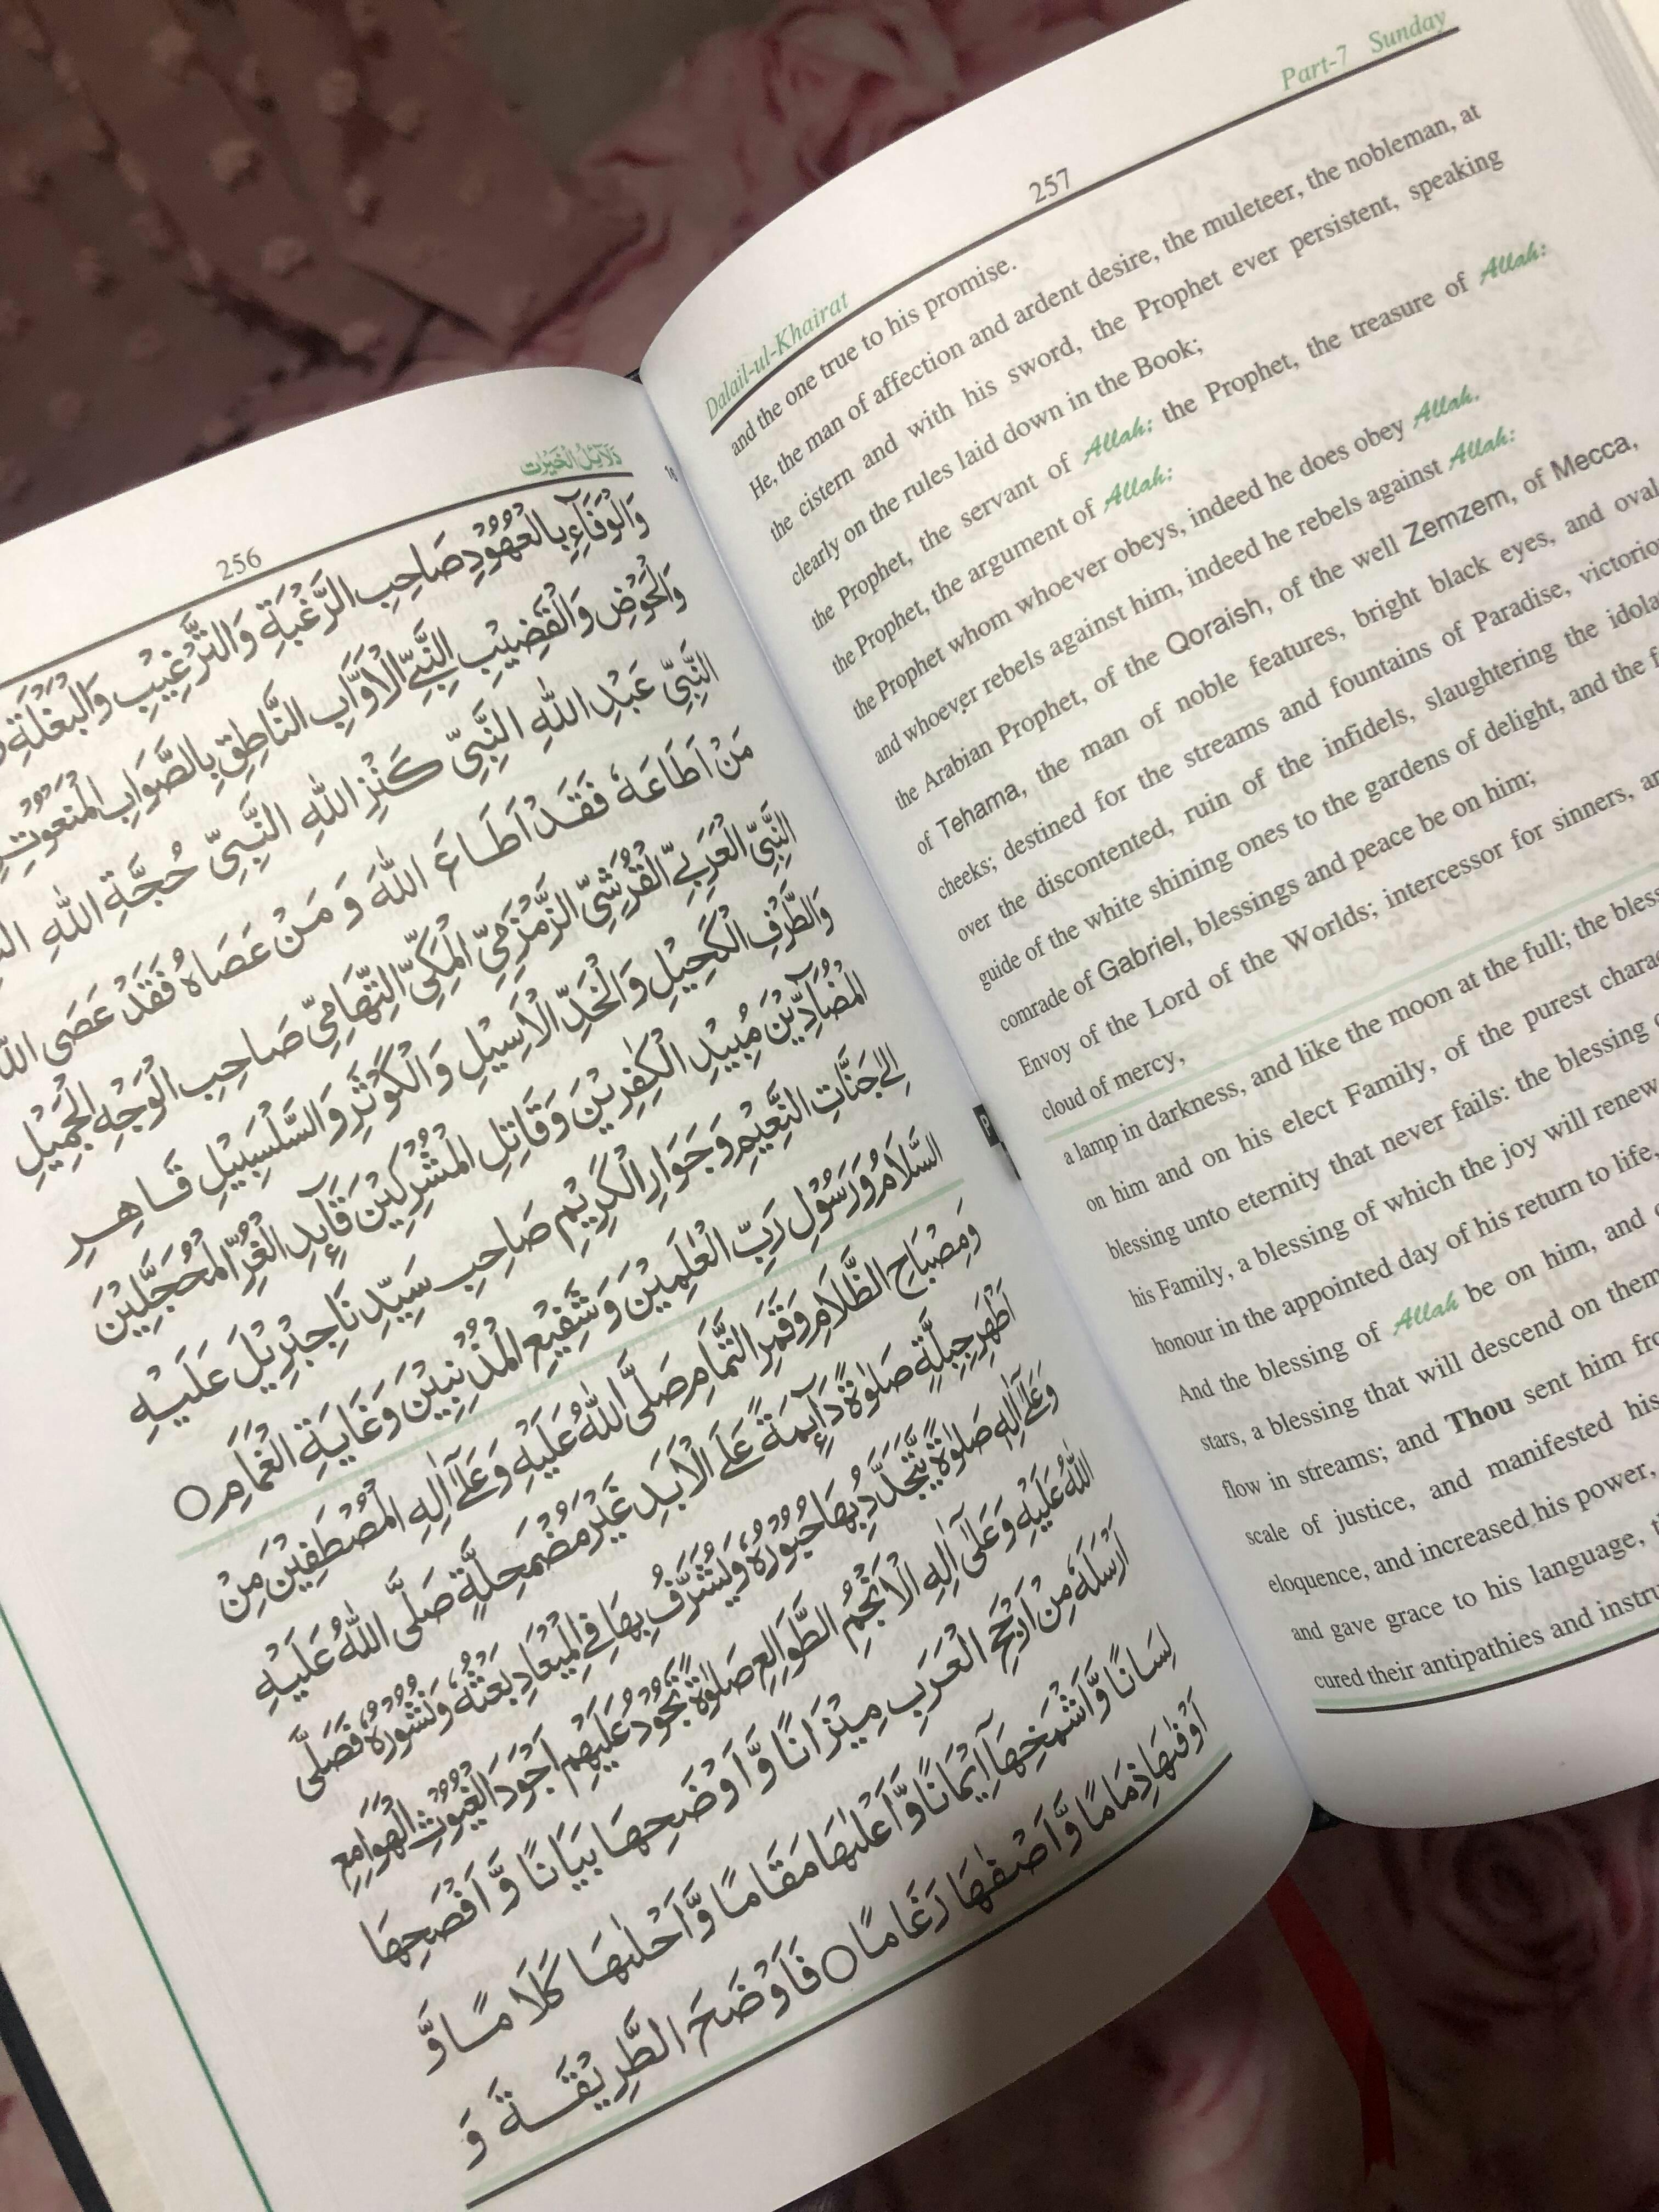 دَلَآئِلُ الْخَيْرٰت
256
وَالْوَفَآءِ بِالْعُهُوْدِ صَاحِبِ الرَّغْبَةِ وَالتَّرْغِيْبِ وَالْبَغْلَةِ
وَالْحَوْضِ وَالْقَضِيْبِ النَّبِيِّ الْاَوَّابِ النَّاطِقِ بِالصَّوَابِ الْمَنْعُوْتِ
النَّبِيِّ عَبْدِ اللّٰهِ النَّبِيِّ كَنْزِ اللّٰهِ النَّبِيِّ حُجَّةِ اللّٰهِ
مَنْ اَطَاعَهٗ فَقَدْ اَطَاعَ اللّٰهَ وَ مَنْ عَصَاهُ فَقَدْ عَصَى
النَّبِيِّ الْعَرَبِيِّ الْقُرَشِيِّ الزَّمْزَمِيِّ الْمَكِّيِّ التِّهَامِيِّ صَاحِبِ الْوَجْهِ الْجَمِيْلِ
وَالطَّرْفِ الْكَحِيْلِ وَالْخَدِّ الْاَسِيْلِ وَ الْكَوْثَرِ وَ السَّلْسَبِيْلِ قَاهِرِ
الْمُضَآدِّيْنَ مُبِيْدِ الْكٰفِرِيْنَ وَ قَاتِلِ الْمُشْرِكِيْنَ قَآئِدِ الْغُرِّ الْمُحَجَّلِيْنَ
اِلٰى جَنَّاتِ النَّعِيْمِ وَ جَوَارِ الْكَرِيْمِ صَاحِبِ سَيِّدِنَا جِبْرِيْلَ عَلَيْهِ
السَّلَامُ وَرَسُوْلِ رَبِّ الْعٰلَمِيْنَ وَ شَفِيْعِ الْمُذْنِبِيْنَ وَ غَايَةِ الْغَمَامِ ○
وَ مِصْبَاحِ الظَّلَامِ وَ قَمَرِ التَّمَامِ صَلَّى اللّٰهُ عَلَيْهِ وَ عَلٰٓى اٰلِهِ الْمُصْطَفِيْنَ مِنْ
اَطْهَرِ جِبِلَّةٍ صَلٰوةً دَآئِمَةً عَلَى الْاَبَدِ غَيْرَ مُضْمَحِلَّةٍ صَلَّى اللّٰهُ عَلَيْهِ
وَ عَلٰٓى اٰلِهٖ صَلٰوةً يَّتَجَدَّدُ بِهَا حُبُوْرُهٗ وَ يُشَرَّفُ بِهَا فِي الْمِيْعَادِ بَعْثُهٗ وَ نُشُوْرُهٗ فَصَلَّى
اللّٰهُ عَلَيْهِ وَ عَلٰٓى اٰلِهِ الْاَنْجُمِ الطَّوَالِعِ صَلٰوةً تَجُوْدُ عَلَيْهِمْ اَجْوَدَ الْغُيُوْثِ الْهَوَامِعِ
اَرْسَلَهٗ مِنْ اَرْجَحِ الْعَرَبِ مِيْزَانًا وَّ اَوْضَحِهَا بَيَانًا وَّ اَفْصَحِهَا
لِسَانًا وَّ اَشْمَخِهَا اِيْمَانًا وَّ اَعْلٰىهَا مَقَامًا وَّ اَحْلٰىهَا كَلَامًا وَّ
اَوْفٰىهَا ذِمَامًا وَّ اَصْفٰىهَا رَغَامًا ○ فَاَوْضَحَ الطَّرِيْقَةَ وَ
Dalail-ul-Khairat
257
Part-7 Sunday
and the one true to his promise.
He, the man of affection and ardent desire, the muleteer, the nobleman, at
the cistern and with his sword, the Prophet ever persistent, speaking
clearly on the rules laid down in the Book;
the Prophet, the servant of Allah; the Prophet, the treasure of Allah:
the Prophet, the argument of Allah:
the Prophet whom whoever obeys, indeed he does obey Allah.
and whoever rebels against him, indeed he rebels against Allah:
the Arabian Prophet, of the Qoraish, of the well Zemzem, of Mecca,
of Tehama, the man of noble features, bright black eyes, and oval
cheeks; destined for the streams and fountains of Paradise,
over the discontented, ruin of the infidels, slaughtering the
guide of the white shining ones to the gardens of delight, and the
comrade of Gabriel, blessings and peace be on him;
Envoy of the Lord of the Worlds; intercessor for sinners,
cloud of mercy,
a lamp in darkness, and like the moon at the full; the
on him and on his elect Family, of the purest
blessing unto eternity that never fails: the blessing
his Family, a blessing of which the joy will renew
honour in the appointed day of his return to life,
And the blessing of Allah be on him, and
stars, a blessing that will descend on them
flow in streams; and Thou sent him
scale of justice, and manifested his
eloquence, and increased his power,
and gave grace to his language,
cured their antipathies and